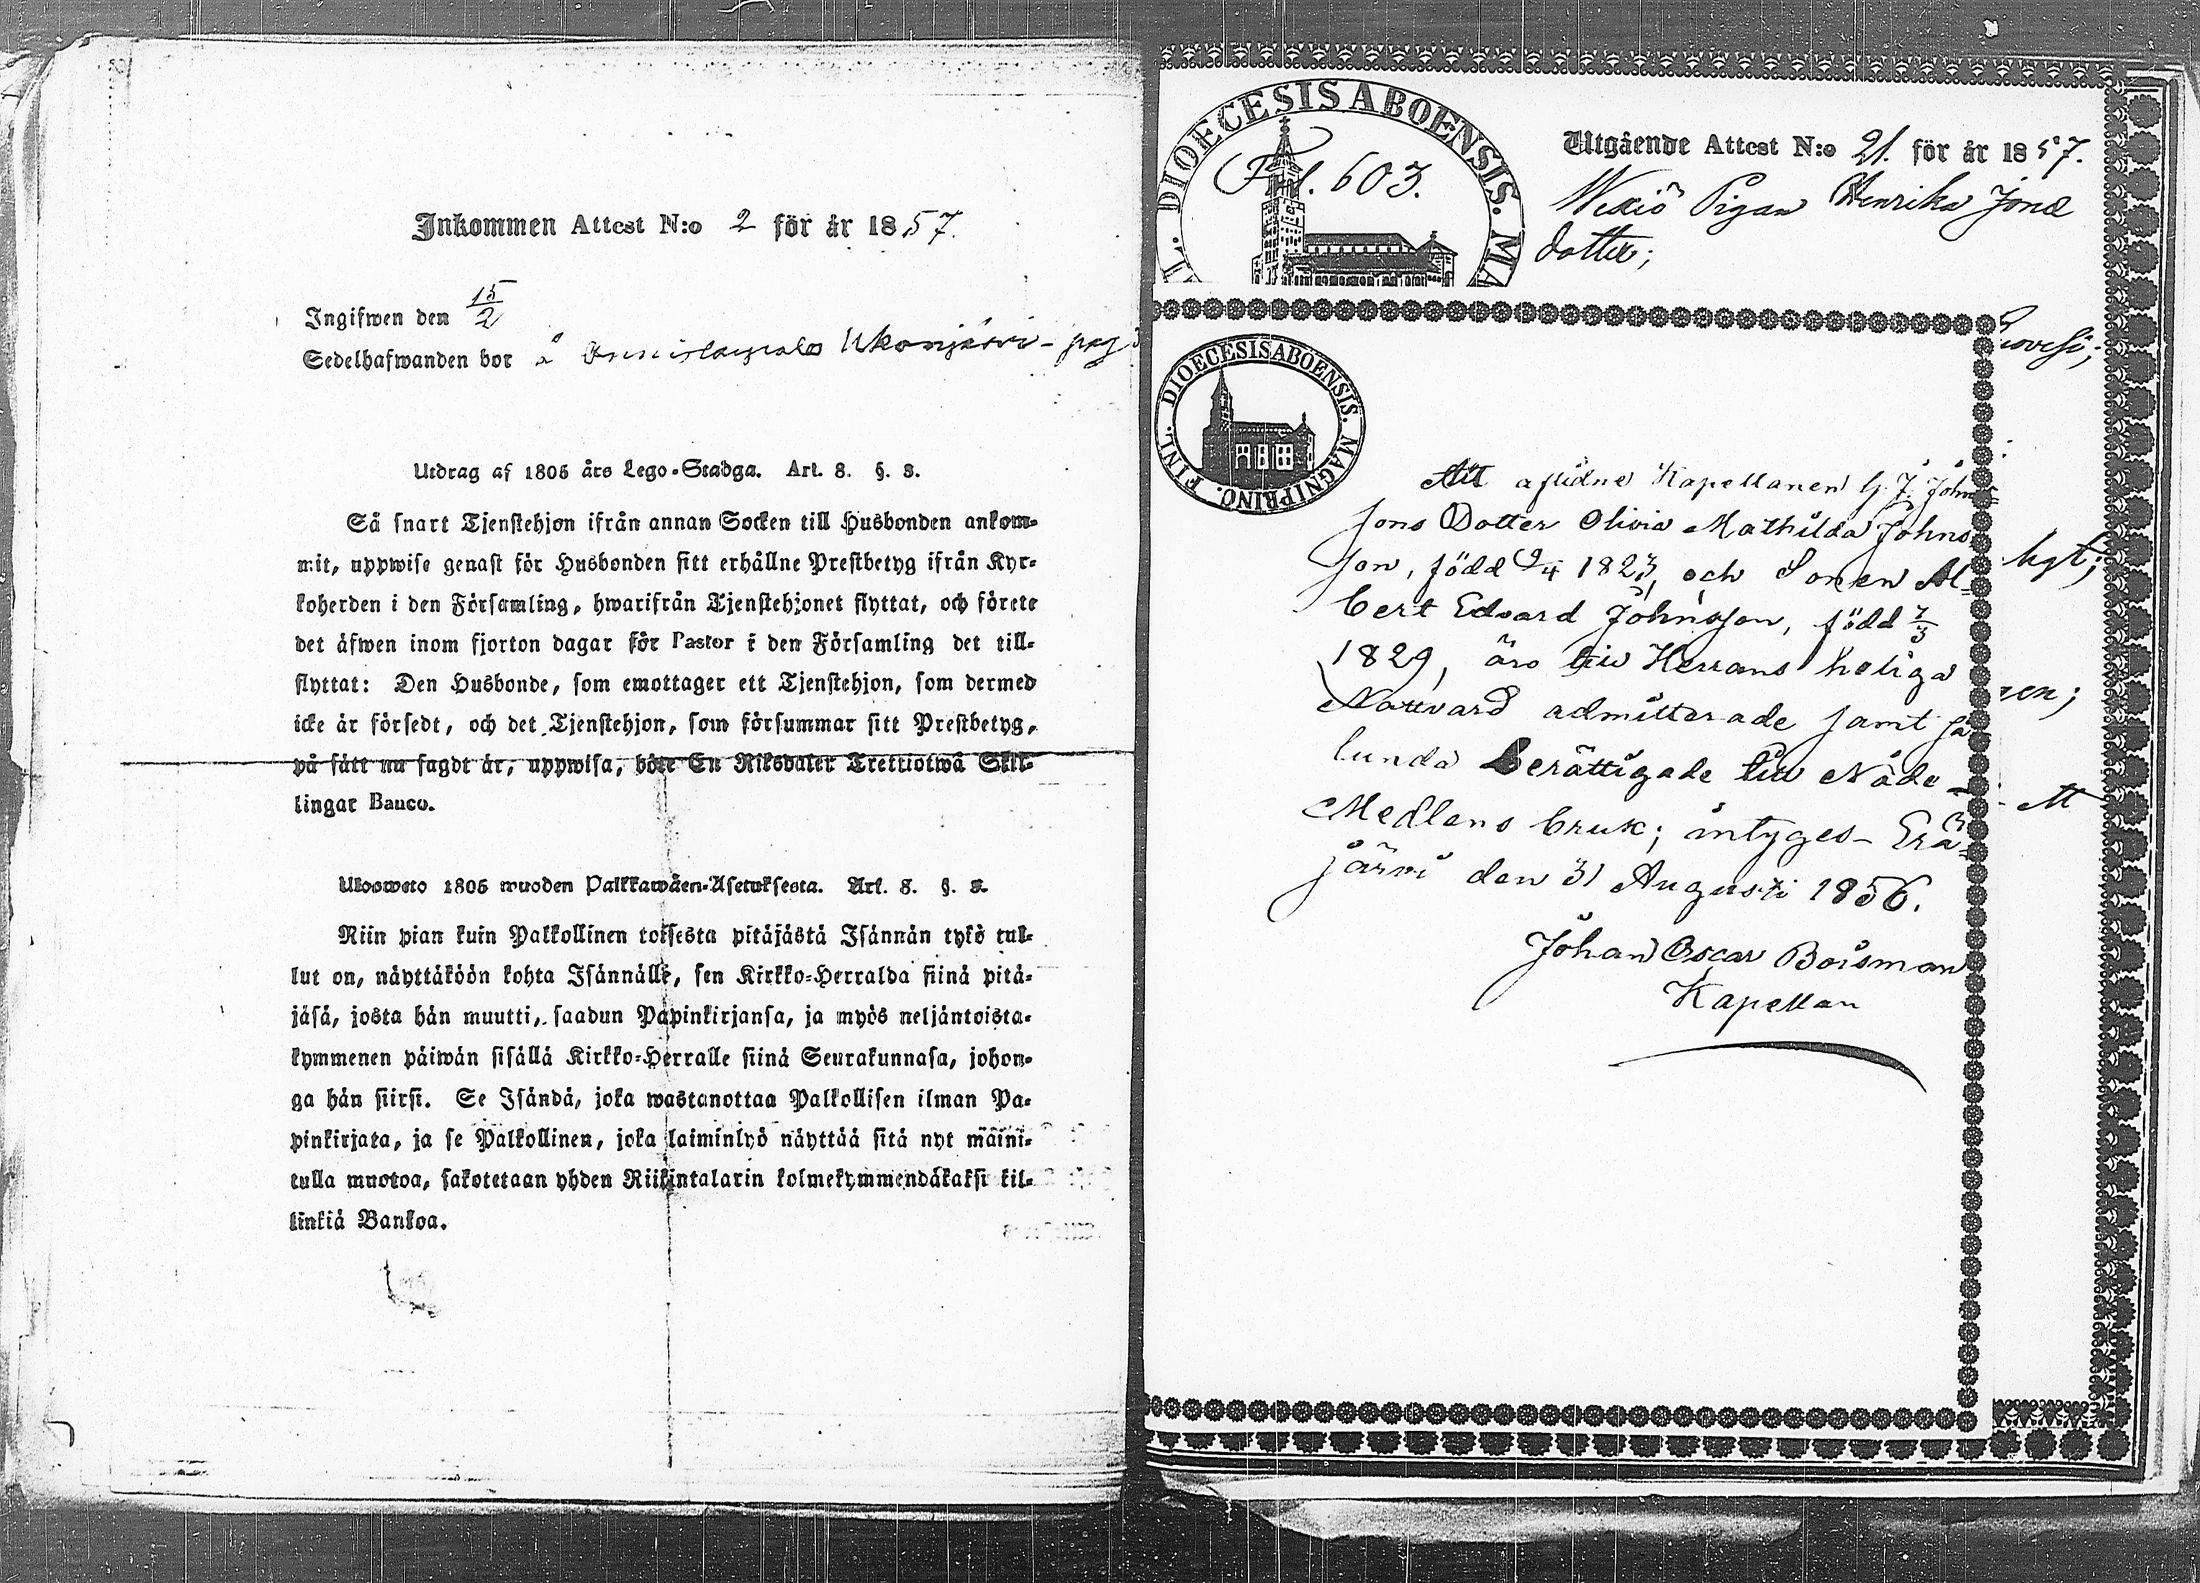 Inkommen Attest N:o 2 för år 1857.
Ingifwen den 15/2
Sedelhafwanden bor å
Utdrag af 1805 års Lego-Stadga. Art. 8. §. 3.
Så snart Tjenstehjon ifrån annan Socken till Husbonden ankom-
mit, uppwise genast för Husbonden sitt erhållne Prestbetyg ifrån Kyr-
koherden i den Församling, hwarifrån Tjenstehjonet flyttat, och förete
det äfwen inom fjorton dagar för Pastor i den Församling det till-
flyttat: Den Husbonde, som emottager ett Tjenstehjon, som dermed
icke är försedt, och det Tjenstehjon, som försummar sitt Prestbetyg,
på sätt nu sagdt är, uppwisa, böte En Riksdaler Trettiotwå Skil-
lingar Banco.
Ulosweto 1805 wuoden Palkkawäen-Asetuksesta. Art. 8. §. 3.
Niin pian kuin Palkollinen toisesta pitäjästä Isännän tykö tul-
lut on, näyttäköön kohta Isännälle, sen Kirkko-Herralda siinä pitä-
jäsä, josta hän muutti, saadun Papinkirjansa, ja myös neljäntoista-
kymmenen päiwän sisällä Kirkko-Herralle siinä Seurakunnasa, johon-
ga hän siirsi. Se Isändä, joka wastanottaa Palkollisen ilman Pa-
pinkirjata, ja se Palkollinen, joka laiminlyö näyttää sitä nyt maini-
tulla muotoa, sakotetaan yhden Riikintalarin kolmekymmendäkaksi kil-
linkiä Bankoa.
DIOECESIS ABOENSIS. MA
Fol. 603.
Utgående Attest N:o 21. för år 1857.
Pigan Henrika Jonæ
dotter;
DIOECESIS ABOENSIS. MAGNIPRINC. FINL.
Att aflidne Kapellanen G. J. Johns-
sons Dotter Olivia Mathilda Johns-
son, född 9/4 1823, och Sonen Al-
bert Edvard Johnsson, född 7/3
1829, äro till Herrans heliga
Nattvard admitterade samt så
lunda berättigade till Nåde-
Medlens bruk; intyges- Erä-
järvi den 31 Augusti 1856.
Johan Oscar Boisman
Kapellan